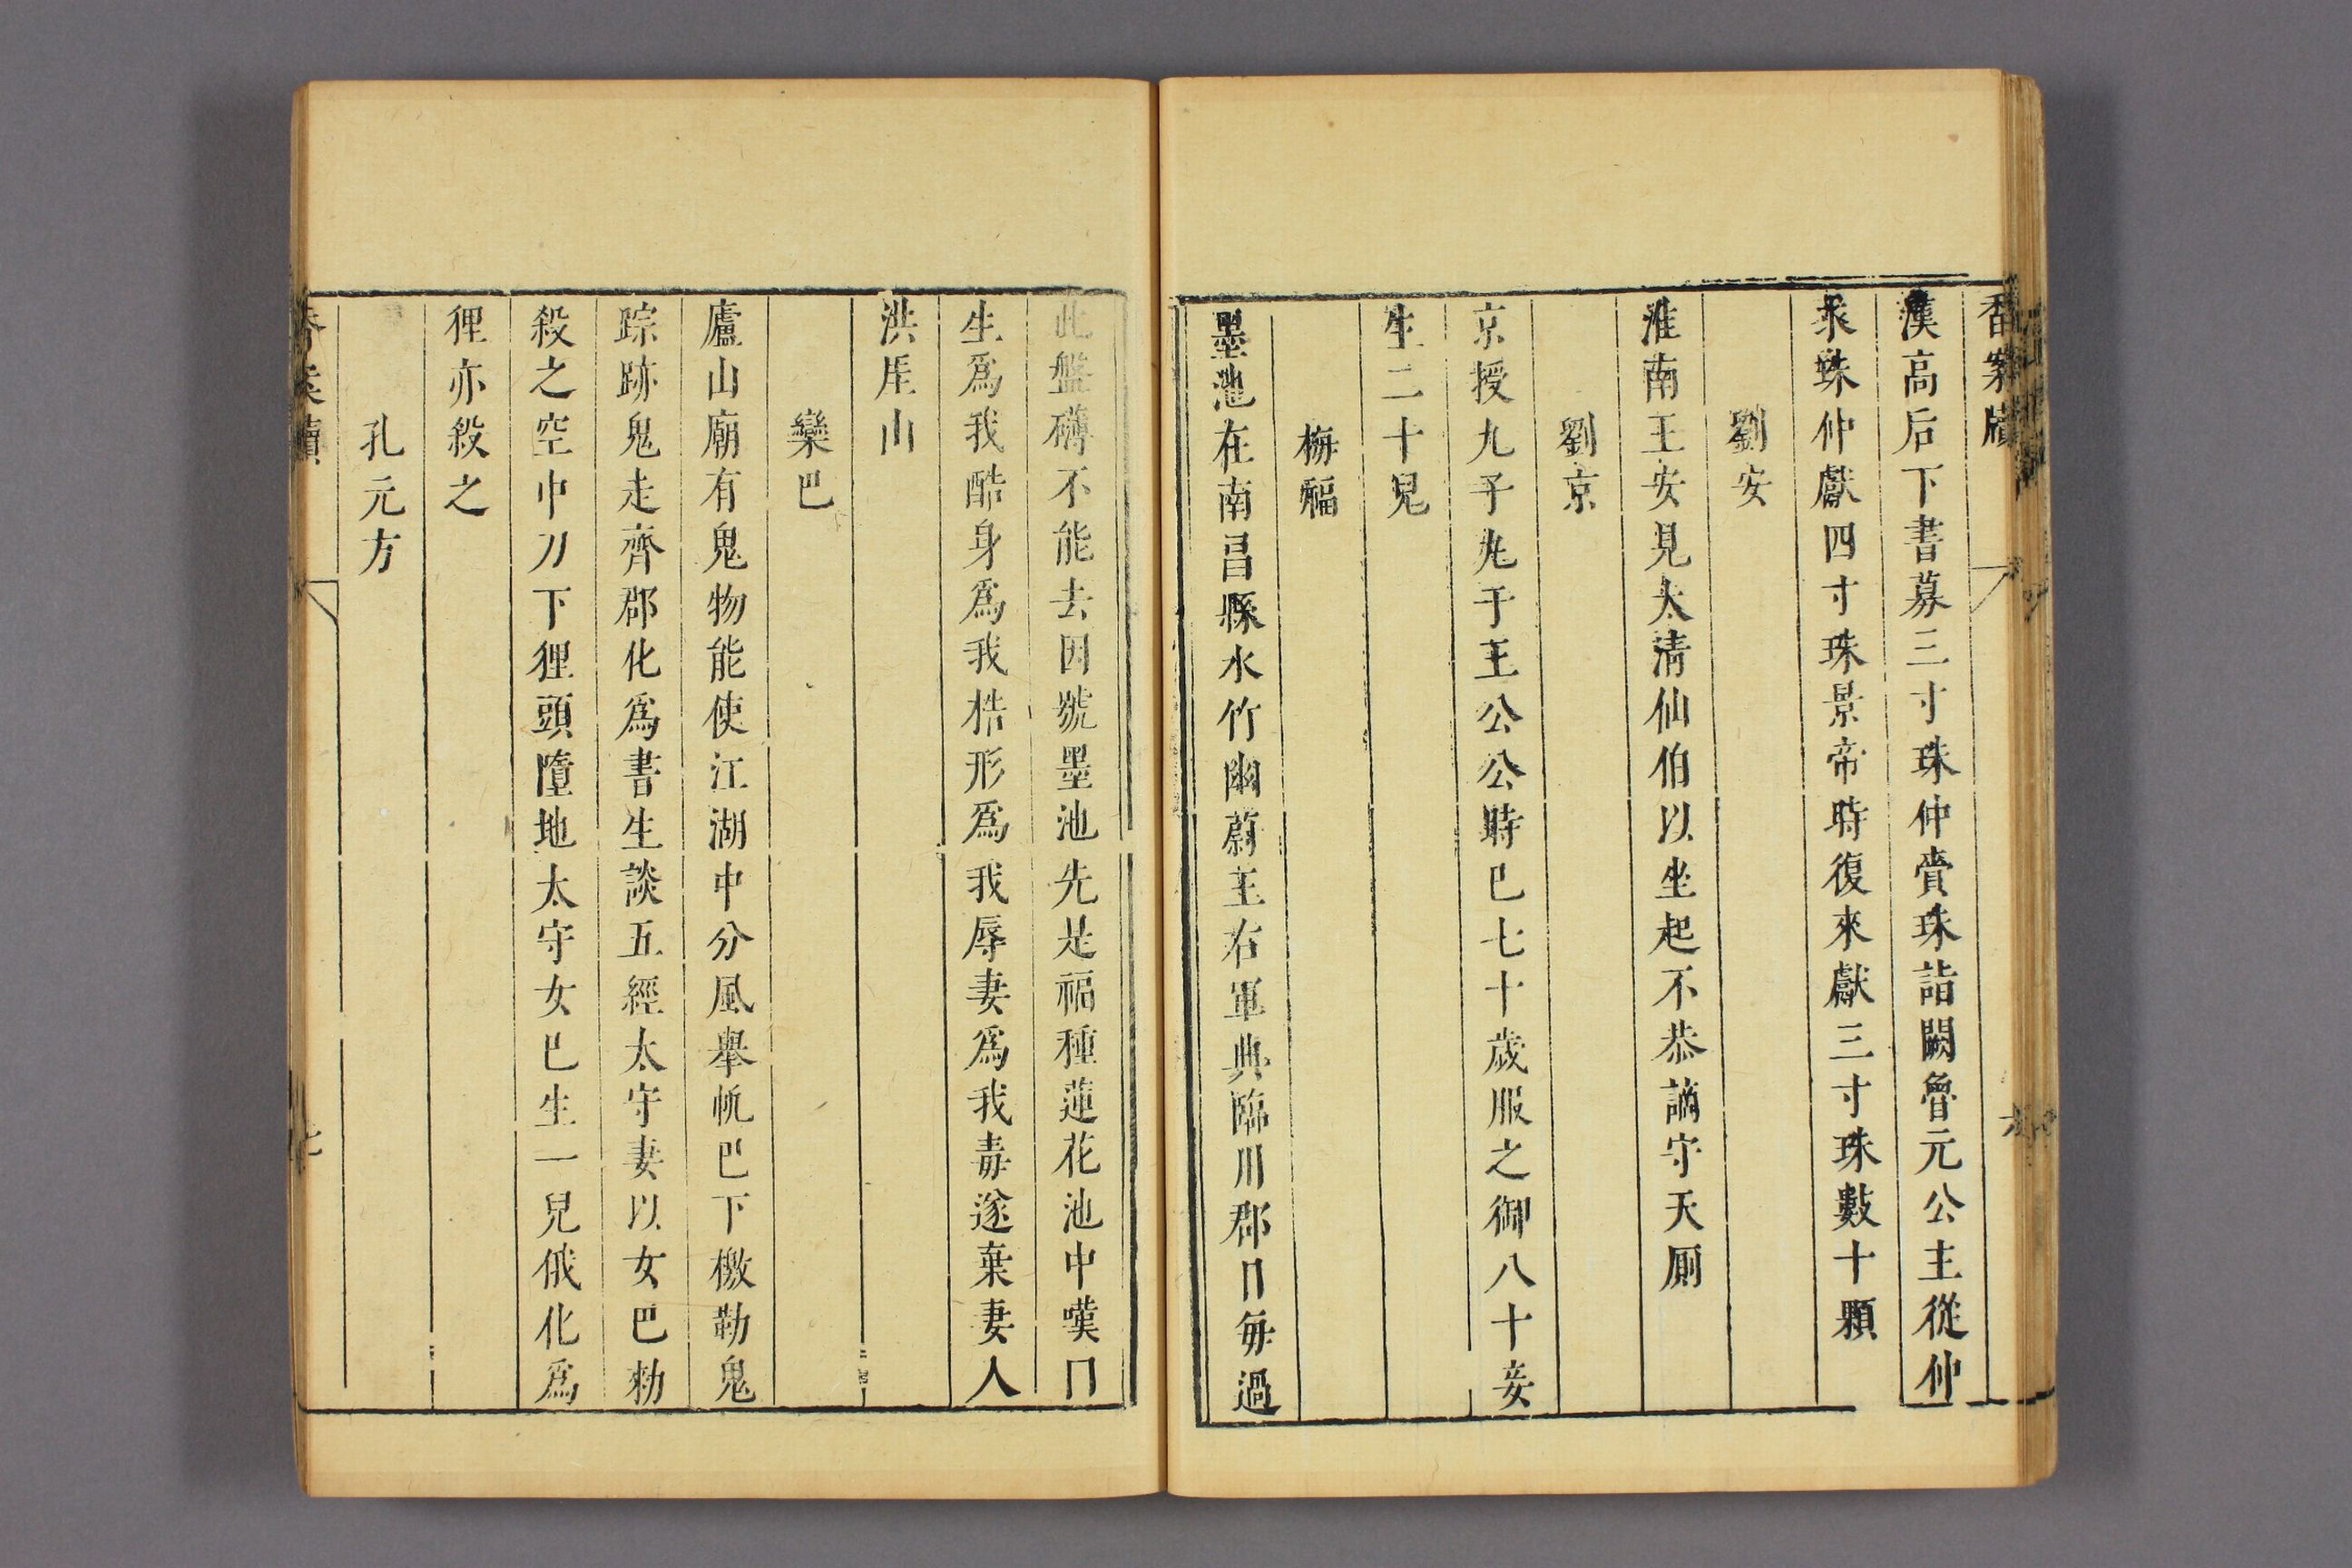 香案牘
漢高后下書募三寸珠仲賫珠詣闕魯元公主從仲
求珠仲獻四寸珠景帝時復來獻三寸珠數十顆
劉安
淮南王安見太淸仙伯以坐起不恭謫守天厠
劉京
京授九子丸于王公公時巳七十歲服之御八十妾
生二十兒
梅福
墨池在南昌縣水竹幽蔚王右軍典臨川郡日每過
六
此盤礴不能去因號墨池先是福種蓮花池中嘆曰
生爲我酷身爲我梏形爲我辱妻爲我毒遂棄妻入
洪厓山
欒巴
廬山廟有鬼物能使江湖中分風舉帆巴下檄勒鬼
踪跡鬼走齊郡化爲書生談五經太守妻以女巴勑
殺之空中刀下狸頭墮地太守女巳生一兒俄化爲
狸亦殺之
孔元方
香案牘
七